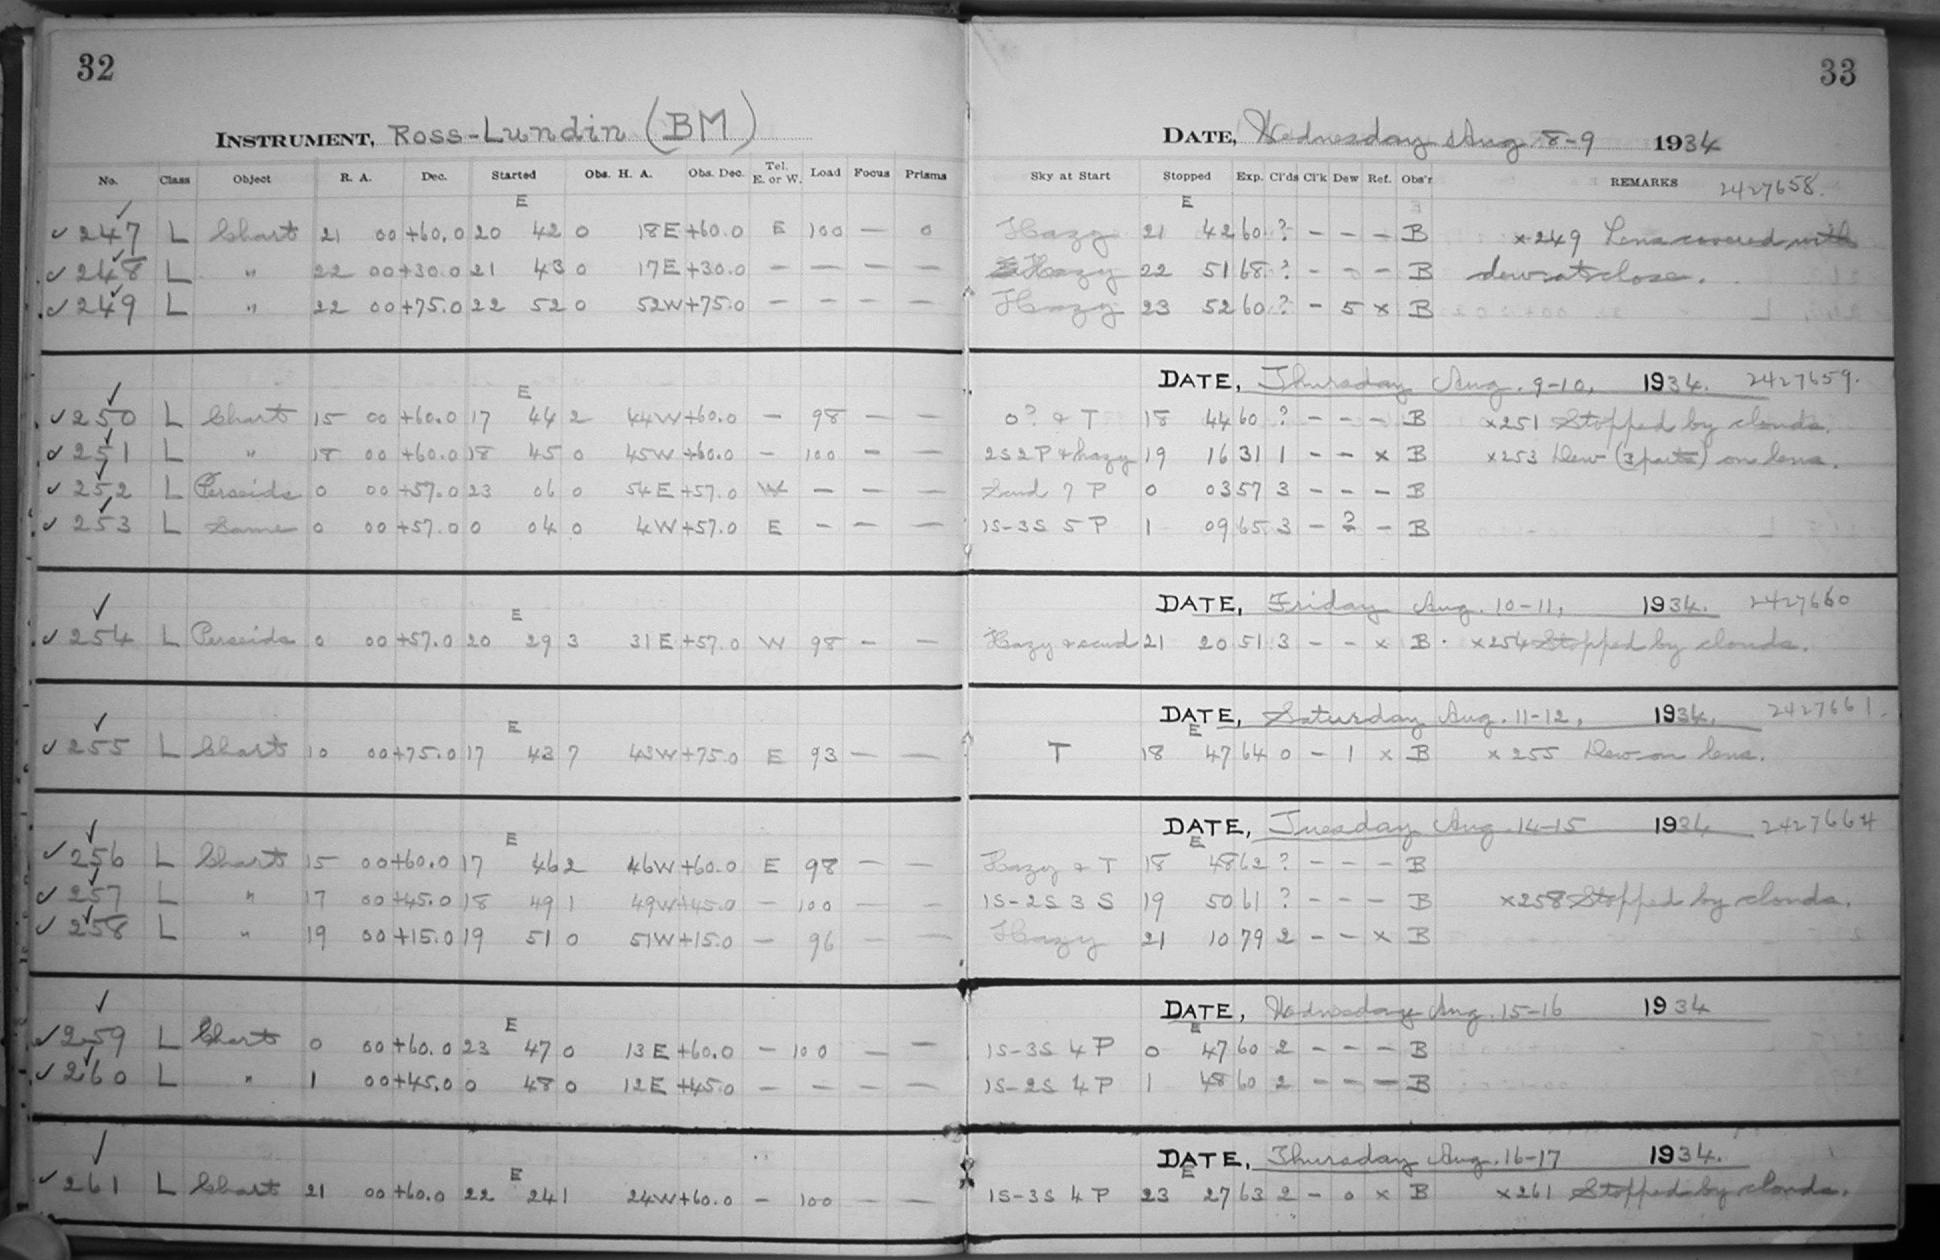 32
INSTRUMENT, Ross-Lundin (BM)
No. Class Object R. A. Dec. Started Obs. H. A. Obs. Dec. Tel. E. or W. Load Focus Prisms
E
✓ 247 L Chart 21 00 +60.0 20 42 0 18E +60.0 E 100 — 0
✓ 248 L " 22 00 +30.0 21 43 0 17E +30.0 — — — —
✓ 249 L " 22 00 +75.0 22 52 0 52W +75.0 — — — —
E
✓ 250 L Chart 15 00 +60.0 17 44 2 44W +60.0 — 98 — —
✓ 251 L " 18 00 +60.0 18 45 0 45W +60.0 — 100 — —
✓ 252 L Perseids 0 00 +57.0 23 06 0 54E +57.0 W — — —
✓ 253 L Same 0 00 +57.0 0 04 0 4W +57.0 E — — —
E
✓ 254 L Perseids 0 00 +57.0 20 29 3 31E +57.0 W 98 — —
E
✓ 255 L Chart 10 00 +75.0 17 43 7 43W +75.0 E 93 — —
E
✓ 256 L Chart 15 00 +60.0 17 46 2 46W +60.0 E 98 — —
✓ 257 L " 17 00 +45.0 18 49 1 49W +45.0 — 100 — —
✓ 258 L " 19 00 +15.0 19 51 0 51W +15.0 — 96 — —
E
✓ 259 L Chart 0 00 +60.0 23 47 0 13E +60.0 — 100 — —
✓ 260 L " 1 00 +45.0 0 48 0 12E +45.0 — — — —
E
✓ 261 L Chart 21 00 +60.0 22 24 1 24W +60.0 — 100 — —
33
DATE, Wednesday Aug 8-9 1934
Sky at Start Stopped Exp. Cl'ds Cl'k Dew Ref. Obs'r REMARKS 2427658.
E
Hazy 21 42 60 ? — — — B x249 Lens covered with
Hazy 22 51 68 ? — — — B dew at close.
Hazy 23 52 60 ? — 5 x B
DATE, Thursday Aug. 9-10, 1934. 2427659.
0? & T 18 44 60 ? — — — B x251 Stopped by clouds.
2S 2P & hazy 19 16 31 1 — — x B x253 Dew (3 parts) on lens.
Scud 7 P 0 03 57 3 — — — B
1S-3S 5 P 1 09 65 3 — 2 — B
DATE, Friday Aug. 10-11, 1934. 2427660
Hazy & scud 21 20 51 3 — — x B. x254 Stopped by clouds.
DATE, Saturday Aug. 11-12, 1934. 2427661.
E
T 18 47 64 0 — 1 x B x255 Dew on lens.
DATE, Tuesday Aug. 14-15 1934 2427664
E
Hazy & T 18 48 62 ? — — — B
1S-2S 3 S 19 50 61 ? — — — B x258 Stopped by clouds.
Hazy 21 10 79 2 — — x B
DATE, Wednesday Aug. 15-16 1934
E
1S-3S 4 P 0 47 60 2 — — — B
1S-2S 4 P 1 48 60 2 — — — B
DATE, Thursday Aug. 16-17 1934.
E
1S-3S 4 P 23 27 63 2 — 0 x B x261 Stopped by clouds.